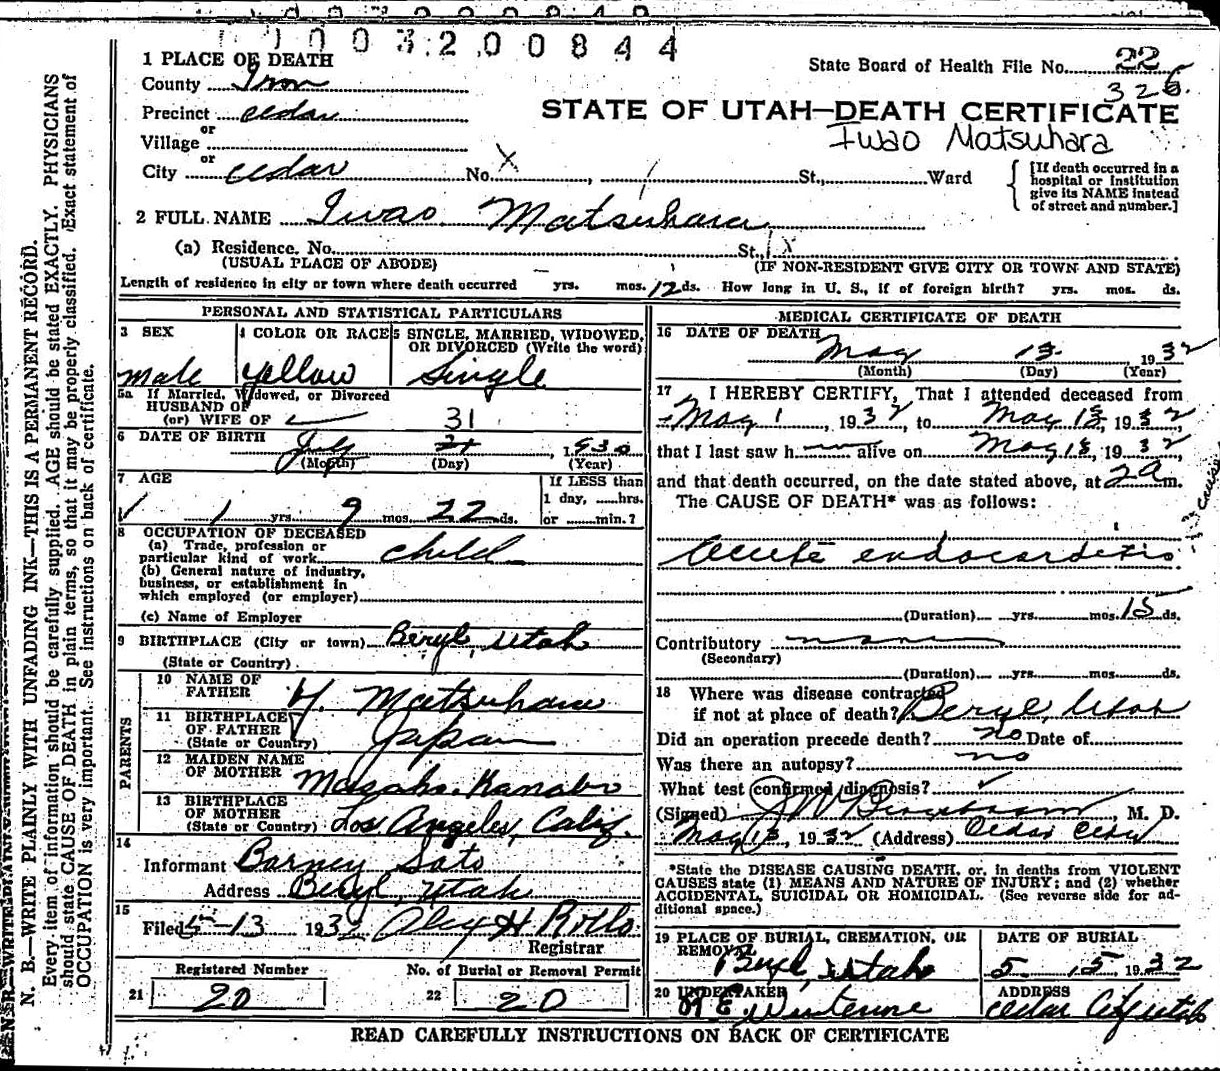 1003200844
State Board of Health File No. 22
326
1 PLACE OF DEATH
County Iron
STATE OF UTAH—DEATH CERTIFICATE
Precinct Cedar
Iwao Matsuhara
or
Village
or
City Cedar No. X St., Ward
[If death occurred in a hospital or institution give its NAME instead of street and number.]
2 FULL NAME Iwao Matsuhara
(a) Residence. No. St. X
(USUAL PLACE OF ABODE) (IF NON-RESIDENT GIVE CITY OR TOWN AND STATE)
Length of residence in city or town where death occurred yrs. mos. 12 ds. How long in U. S., if of foreign birth? yrs. mos. ds.
PERSONAL AND STATISTICAL PARTICULARS
3 SEX 4 COLOR OR RACE 5 SINGLE, MARRIED, WIDOWED, OR DIVORCED (Write the word)
Male Yellow Single
5a If Married, Widowed, or Divorced
HUSBAND OF
(or) WIFE OF
31
6 DATE OF BIRTH July 1930
(Month) (Day) (Year)
7 AGE If LESS than
1 day, hrs.
1 yrs. 9 mos. 22 ds. or min.?
8 OCCUPATION OF DECEASED
(a) Trade, profession or
particular kind of work child
(b) General nature of industry,
business, or establishment in
which employed (or employer)
(c) Name of Employer
9 BIRTHPLACE (City or town) Beryl, Utah
(State or Country)
PARENTS
10 NAME OF
FATHER Y. Matsuhara
11 BIRTHPLACE
OF FATHER
(State or Country) Japan
12 MAIDEN NAME
OF MOTHER Masako Kanabo
13 BIRTHPLACE
OF MOTHER
(State or Country) Los Angeles, Calif.
14
Informant Barney Sato
Address Beryl, Utah
15
Filed 5-13 1932
Registrar
Registered Number No. of Burial or Removal Permit
21 20 22 20
MEDICAL CERTIFICATE OF DEATH
16 DATE OF DEATH
May 13 1932
(Month) (Day) (Year)
17 I HEREBY CERTIFY, That I attended deceased from
May 1, 1932, to May 13, 1932,
that I last saw h alive on May 13, 1932,
and that death occurred, on the date stated above, at 2 a m.
The CAUSE OF DEATH* was as follows:
Acute endocarditis
(Duration) yrs. mos. 15 ds.
Contributory none
(Secondary)
(Duration) yrs. mos. ds.
18 Where was disease contracted
if not at place of death? Beryl, Utah
Did an operation precede death? no Date of
Was there an autopsy? no
What test confirmed diagnosis?
(Signed) M. D.
May 13, 1932 (Address) Cedar City
*State the DISEASE CAUSING DEATH, or, in deaths from VIOLENT
CAUSES state (1) MEANS AND NATURE OF INJURY; and (2) whether
ACCIDENTAL, SUICIDAL OR HOMICIDAL. (See reverse side for ad-
ditional space.)
19 PLACE OF BURIAL, CREMATION, OR
REMOVAL
Beryl, Utah
DATE OF BURIAL
5 15 1932
20 UNDERTAKER
ADDRESS
Cedar City Utah
READ CAREFULLY INSTRUCTIONS ON BACK OF CERTIFICATE
N. B.—WRITE PLAINLY WITH UNFADING INK—THIS IS A PERMANENT RECORD.
Every item of information should be carefully supplied. AGE should be stated EXACTLY. PHYSICIANS
should state CAUSE OF DEATH in plain terms, so that it may be properly classified. Exact statement of
OCCUPATION is very important. See instructions on back of certificate.